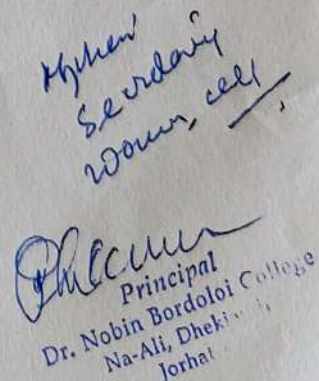 Secretary
Women, cell
Principal
Dr. Nobin Bordoloi College
Na-Ali, Dheki
Jorhat